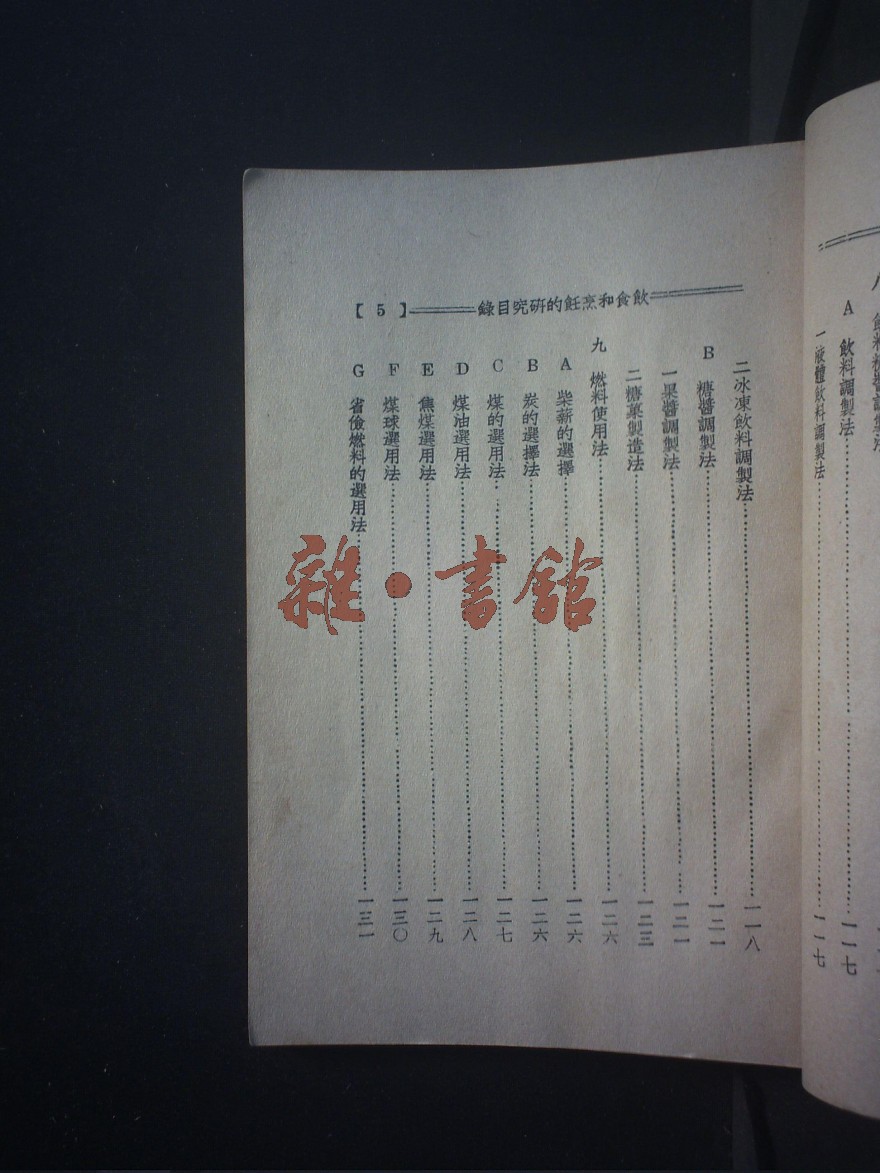 飲料調製法
A 飲料調製法……一一七
一液體飲料調製法……一一七
錄目究研的飪烹和食飲
【 5 】
二冰凍飲料調製法……一一八
B 糖醬調製法……一二一
一果醬調製法……一二一
二糖菓製造法……一二三
九 燃料使用法……一二六
A 柴薪的選擇……一二六
B 炭的選擇法……一二六
C 煤的選用法……一二七
D 煤油選用法……一二八
E 焦煤選用法……一二九
F 煤球選用法……一三〇
G 省儉燃料的選用法……一三一
雜·書館